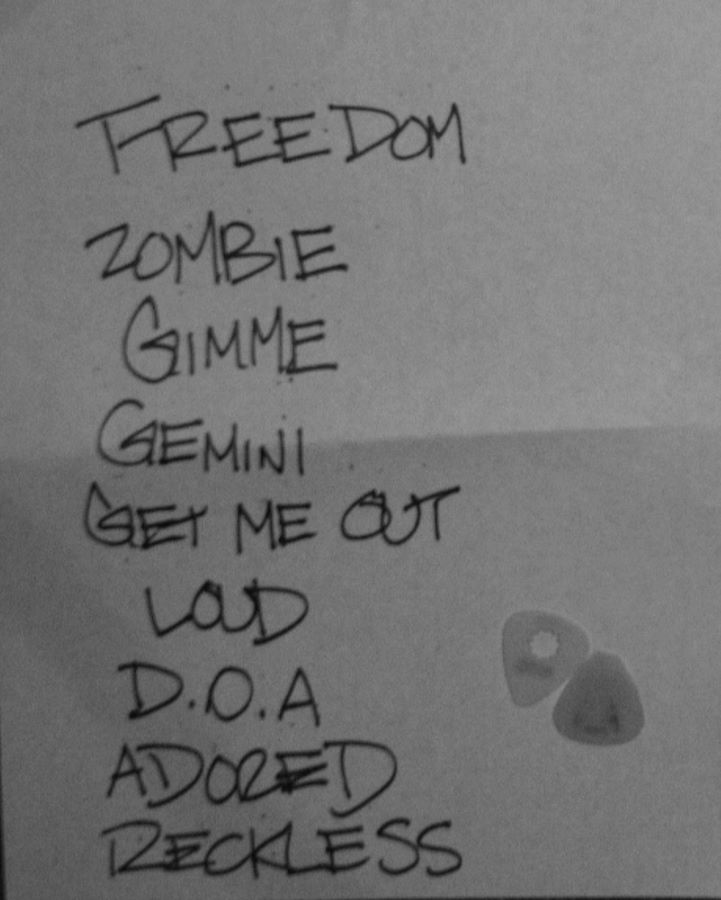 FREEDOM
ZOMBIE
GIMME
GEMINI
GET ME OUT
LOUD
D.O.A
ADORED
RECKLESS